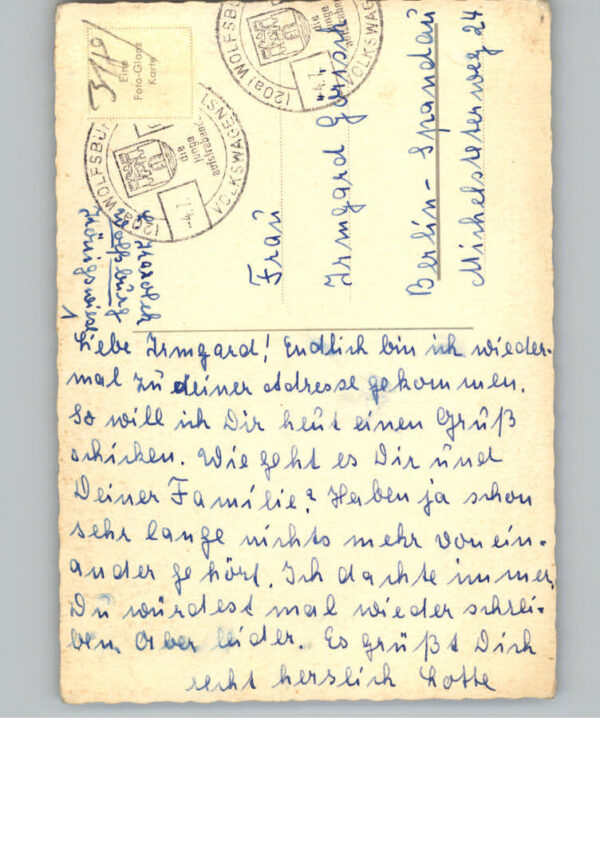 319
Eine
Foto-Glanz
Karte
(20a) WOLFSBURG
VOLKSWAGENS
die
junge
aufstrebende
-4.
(20a) WOLFSBUR
VOLKSWAGENS
die
junge
aufstrebende
-4.
Wolfsburg
Königswiese
1
Frau
Irmgard
Berlin-Spandau
24
Liebe Irmgard! Endlich bin ich wieder-
mal zu deiner Adresse gekommen.
So will ich Dir heut einen Grüß
schicken. Wie geht es Dir und
Deiner Familie? Haben ja schon
sehr lange nichts mehr von ein-
ander gehört. Ich dachte immer,
Du würdest mal wieder schrei-
ben. Aber leider. Es grüßt Dich
recht herzlich Lotte